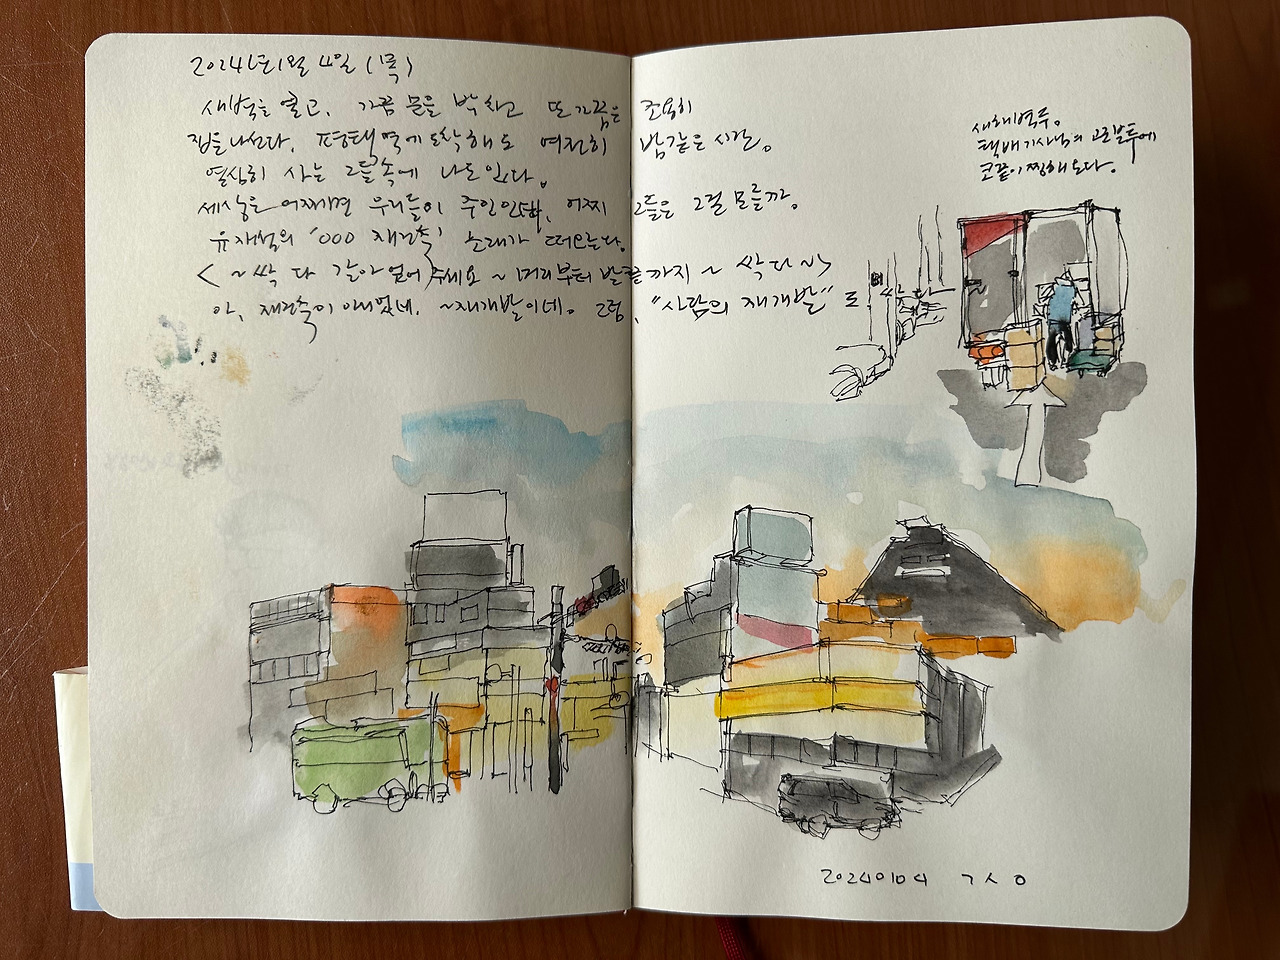 2024년 1월 4일 (목)
새벽을 열고, 가끔 문을 박차고 또 가끔은 조용히
집을 나선다. 평택역에 도착해도 여전히 밤같은 시간.
열심히 사는 그들속에 나도 있다.
세상은 어쩌면 우리들이 주인인데, 어찌 그들은 그걸 모를까.
유재석의 '000 재건축' 노래가 떠오른다.
< ~ 싹 다 갈아 엎어 주세요 ~ 머리부터 발끝까지 ~ 싹 다 ~>
아, 재건축이 아니었네. ~재개발이네. 그럼, "사람의 재개발" 또
새해벽두.
택배기사님의 고군분투에
코끝이 찡해온다.
20240104 ㄱ ㅅ ㅇ